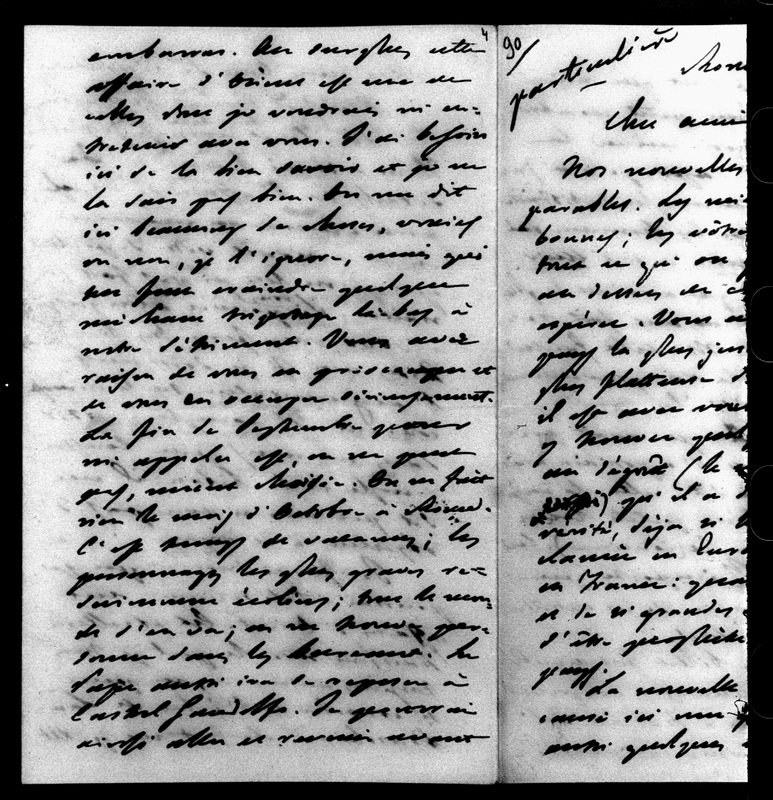 embarras. Au surplus cette
affaire d'Orient est une de
celles dont je voudrais m'en-
tretenir avec vous. J'ai besoin
ici de la bien savoir et je ne
la sais pas bien. On me dit
ici beaucoup de choses, vraies
ou non, je l'ignore, mais qui
me font craindre quelque
méchant tripotage là-bas à
notre détriment. Vous avez
raison de vous en préoccuper et
de vous en occuper
La fin de Septembre pour
m'appeler est, on ne peut
pas, mieux choisie. On ne fait
rien le mois d'Octobre à Rome.
C'est temps de vacances; les
personnages les plus graves re-
deviennent écoliers; tout le mon-
de s'en va; on ne trouve per-
sonne dans les bureaux. Le
Pape aussi ira se reposer à
Castel Gandolfo. Je pourrai
ainsi aller et revenir avant
4
90/
particulière
Rome
Cher ami
Nos nouvelles
parables. Les
bonnes; les vôtres
tout ce qui
au dessus de
espérer. Vous
pays la plus
plus flatteuse
il est avec vous
y trouver
(le
qu'il a
vérité, déjà si
clamée en
en France:
et de si grandes
d'être prophète
pays.
La nouvelle
causé ici une
aussi quelques